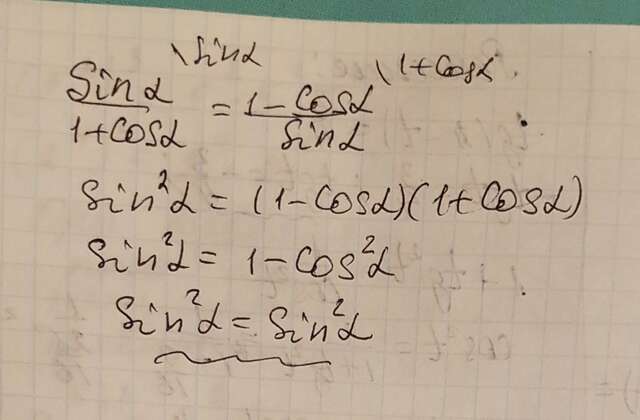 \sinα \1+cosα
sinα/1+cosα = 1-cosα/sinα
sin²α = (1-cosα)(1+cosα)
sin²α = 1-cos²α
sin²α = sin²α